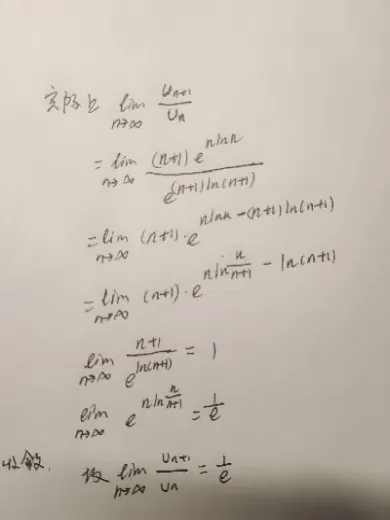 实际上 lim_{n→∞} u_{n+1}/u_n
= lim_{n→∞} (n+1) e^{n ln n} / e^{(n+1) ln(n+1)}
= lim_{n→∞} (n+1)·e^{n ln n - (n+1) ln(n+1)}
= lim_{n→∞} (n+1)·e^{n ln n/(n+1) - ln(n+1)}
lim_{n→∞} (n+1)/e^{ln(n+1)} = 1
lim_{n→∞} e^{n ln n/(n+1)} = 1/e
收敛. 故 lim_{n→∞} u_{n+1}/u_n = 1/e